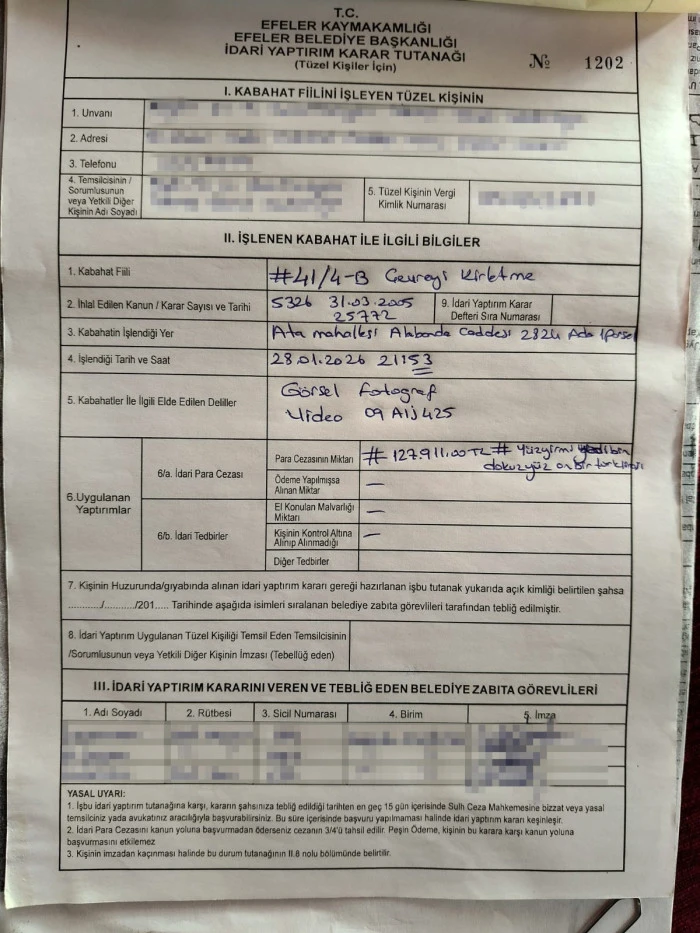 T.C.
EFELER KAYMAKAMLIĞI
EFELER BELEDİYE BAŞKANLIĞI
İDARİ YAPTIRIM KARAR TUTANAĞI
(Tüzel Kişiler İçin)
№ 1202
I. KABAHAT FİİLİNİ İŞLEYEN TÜZEL KİŞİNİN
1. Unvanı
2. Adresi
3. Telefonu
4. Temsilcisinin /
Sorumlusunun
veya Yetkili Diğer
Kişinin Adı Soyadı
5. Tüzel Kişinin Vergi
Kimlik Numarası
II. İŞLENEN KABAHAT İLE İLGİLİ BİLGİLER
1. Kabahat Fiili
#41/4-B Çevreyi Kirletme
2. İhlal Edilen Kanun / Karar Sayısı ve Tarihi
5326 31.03.2005
25772
9. İdari Yaptırım Karar
Defteri Sıra Numarası
3. Kabahatin İşlendiği Yer
Ata mahallesi Alabanda Caddesi 2824 Ada 1Parsel
4. İşlendiği Tarih ve Saat
28.01.2026 21153
5. Kabahatler İle İlgili Elde Edilen Deliller
Görsel Fotograf
Video 09 AIJ 425
6.Uygulanan
Yaptırımlar
6/a. İdari Para Cezası
Para Cezasının Miktarı
# 127.911,00 TL # Yüzyirmi yedibin
dokuzyüz on bir türk lirası
Ödeme Yapılmışsa
Alınan Miktar
—
6/b. İdari Tedbirler
El Konulan Malvarlığı
Miktarı
—
Kişinin Kontrol Altına
Alınıp Alınmadığı
—
Diğer Tedbirler
7. Kişinin Huzurunda/gıyabında alınan idari yaptırım kararı gereği hazırlanan işbu tutanak yukarıda açık kimliği belirtilen şahsa
........./........./201..... Tarihinde aşağıda isimleri sıralanan belediye zabıta görevlileri tarafından tebliğ edilmiştir.
8. İdari Yaptırım Uygulanan Tüzel Kişiliği Temsil Eden Temsilcisinin
/Sorumlusunun veya Yetkili Diğer Kişinin İmzası (Tebellüğ eden)
III. İDARİ YAPTIRIM KARARINI VEREN VE TEBLİĞ EDEN BELEDİYE ZABITA GÖREVLİLERİ
1. Adı Soyadı
2. Rütbesi
3. Sicil Numarası
4. Birim
5. İmza
YASAL UYARI:
1. İşbu idari yaptırım tutanağına karşı, kararın şahsınıza tebliğ edildiği tarihten en geç 15 gün içerisinde Sulh Ceza Mahkemesine bizzat veya yasal
temsilciniz yada avukatınız aracılığıyla başvurabilirsiniz. Bu süre içerisinde başvuru yapılmaması halinde idari yaptırım kararı kesinleşir.
2. İdari Para Cezasını kanun yoluna başvurmadan öderseniz cezanın 3/4'ü tahsil edilir. Peşin Ödeme, kişinin bu karara karşı kanun yoluna
başvurmasını etkilemez
3. Kişinin imzadan kaçınması halinde bu durum tutanağının II.8 nolu bölümünde belirtilir.